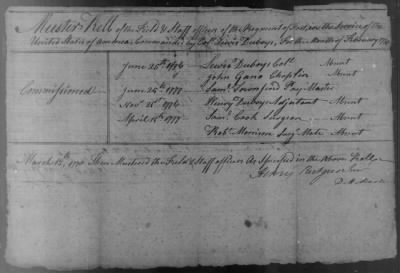 Muster Roll of the Field & Staff officers of the Regiment of Foot in the Service of the
United States of America Commanded by Coll. Lewis Duboys, For the Month of February 1778
June 26th 1776 Lewis Duboys Coll. Mount
John Gano Chaplin Mount
Commissioned June 25th 1777 Saml. Townsend Pay Master
Novr. 21st 1776 Henry Duboys Adjutant Mount
April 15th 1777 Saml. Cook Surgeon Mount
Robt. Morrison Surgs Mate Mount
March 12th 1778 Then Mustered the Field & Staff officers As Specified in the Above Roll
Henry Rutgers Junr